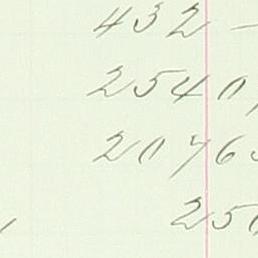 432 -
2540,
20765
250